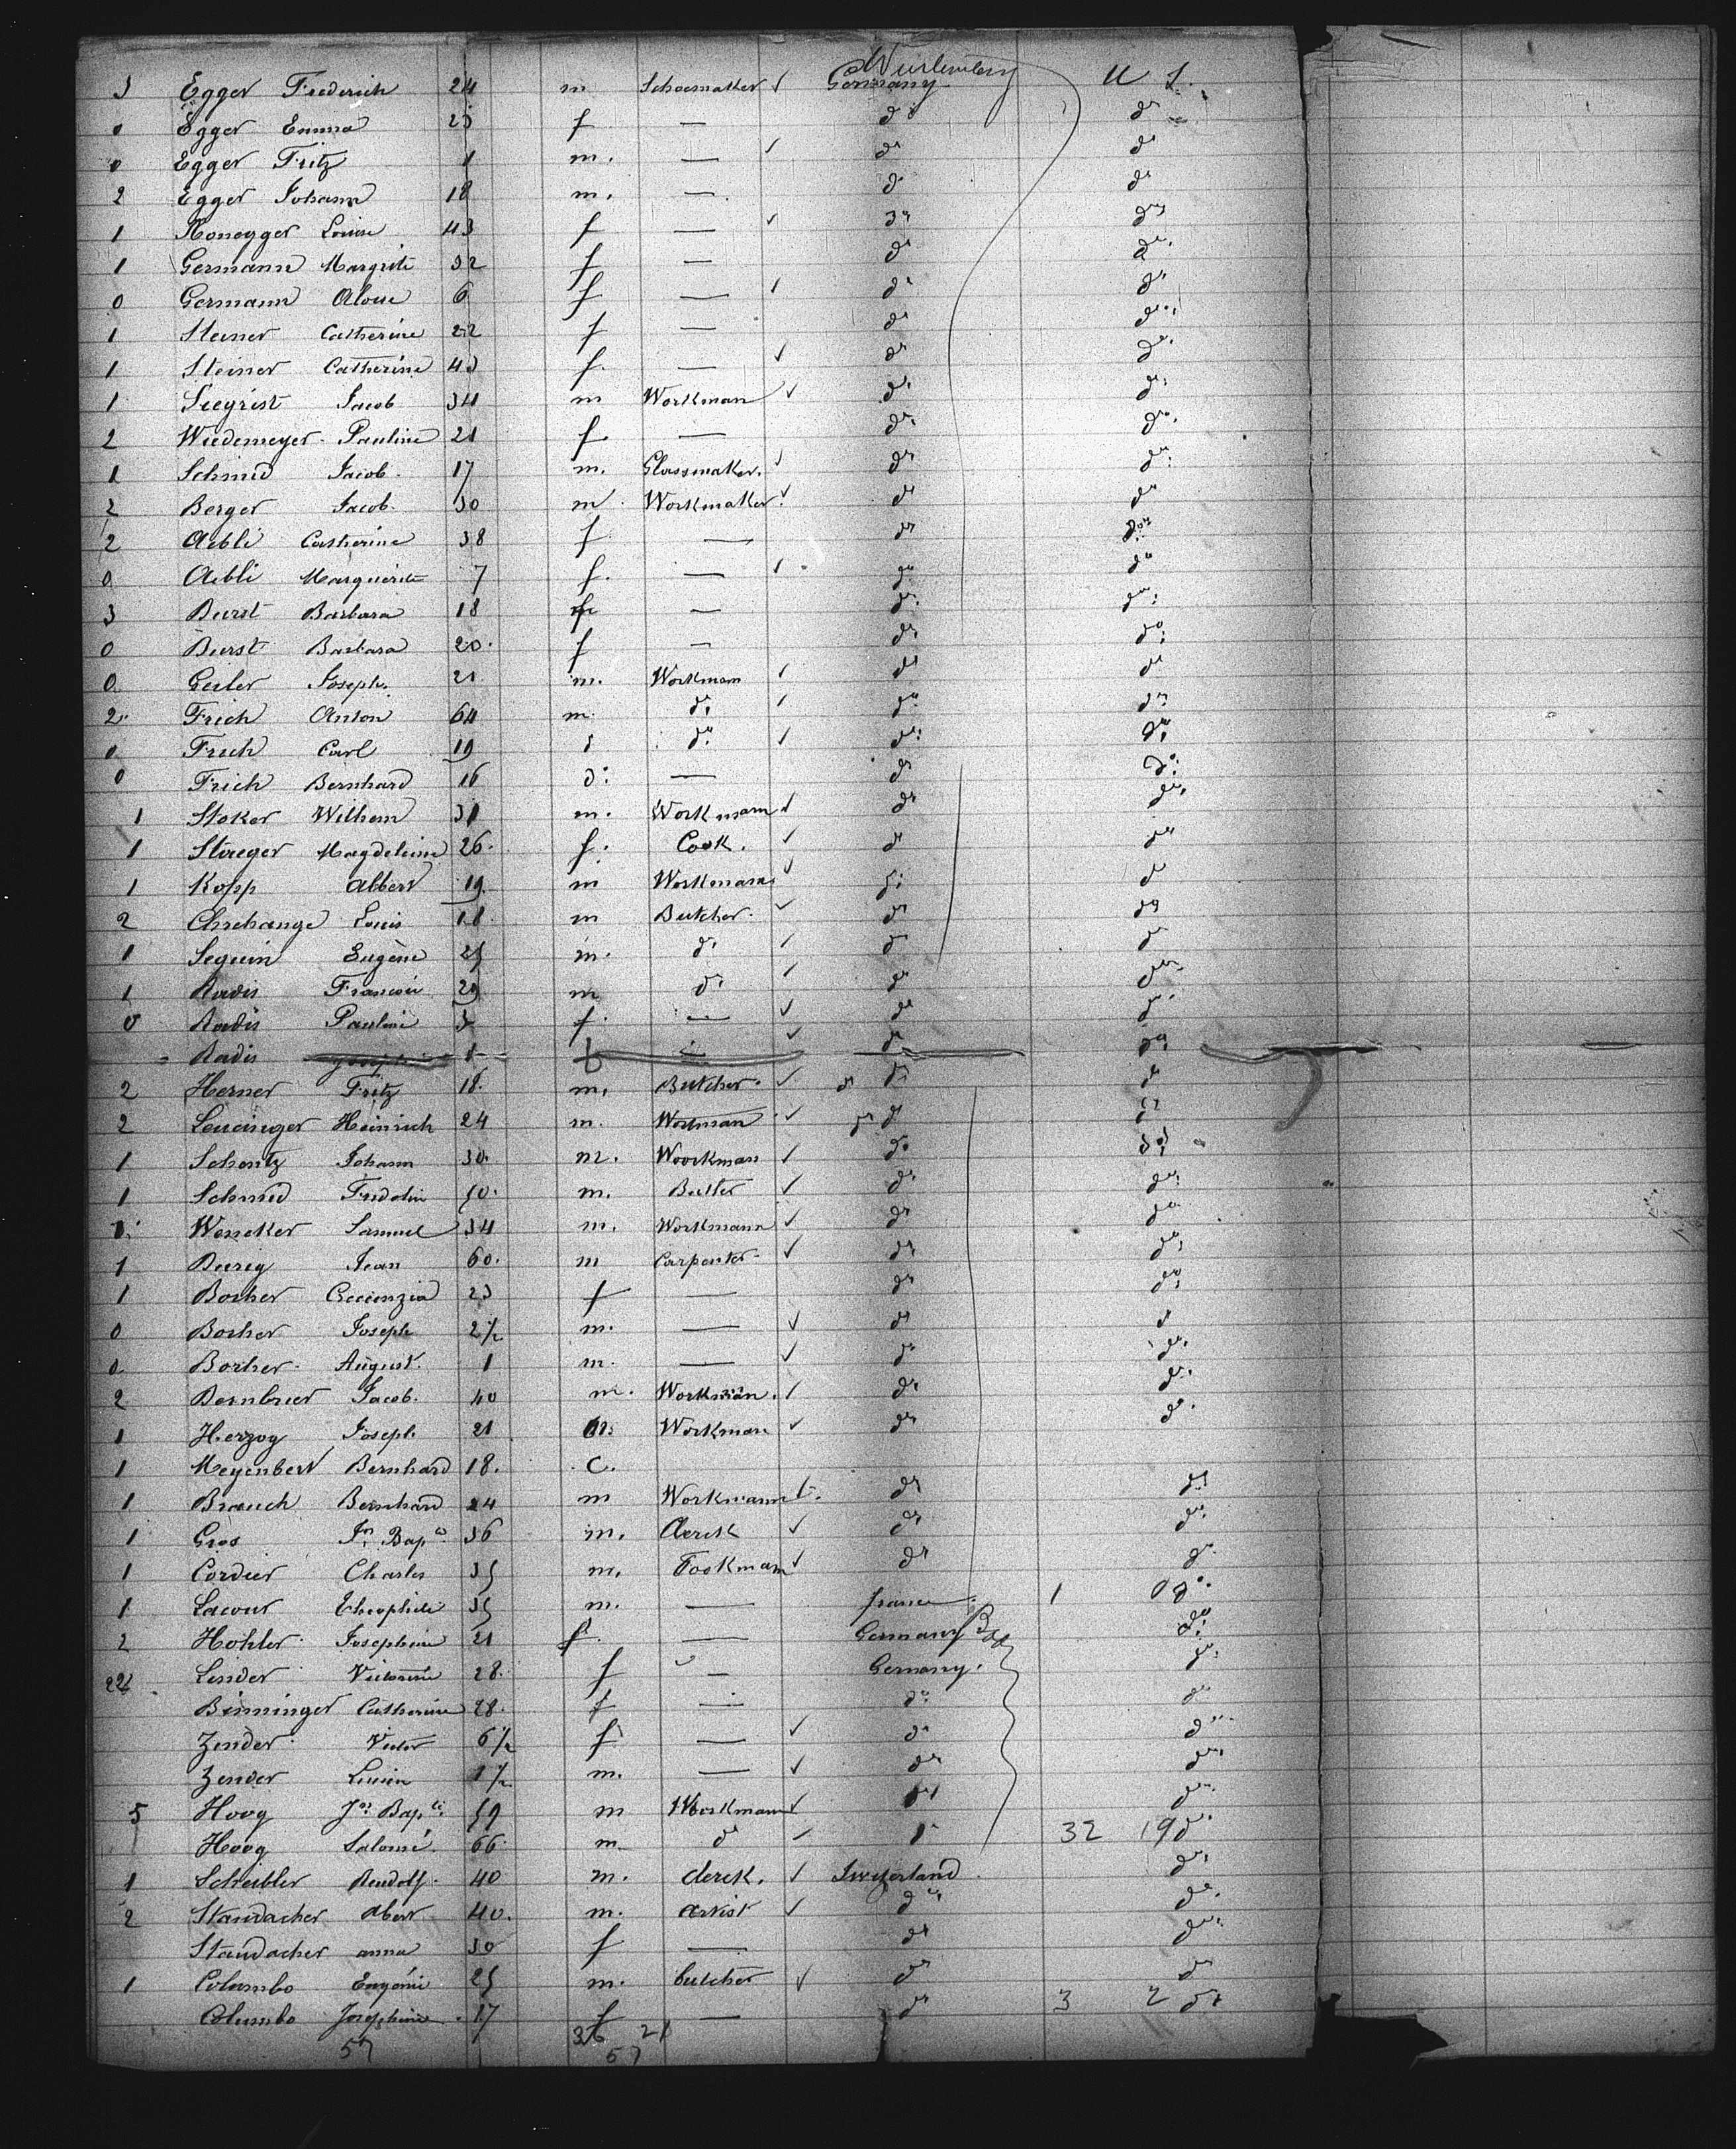 Wurtemberg
3 Egger Frederich 24 m Schoemaker ✓ Germany U S.
0 Egger Emma 23 f — do do
0 Egger Fritz 1 m. — ✓ do do
2 Egger Johann 18 m. — do do
1 Honegger Louise 43 f — ✓ do do
1 Germann Margrite 32 f — do do
0 Germann 6 f — ✓ do do
1 Steiner Catherine 22 f — do do
1 Steiner Catherine 43 f. — ✓ do do
1 Siegrist Jacob 34 m Workman ✓ do do
2 Wiedemeyer Pauline 21 f. — do do
1 Schmid Jacob 17 m. Glassmaker. ✓ do do
2 Berger Jacob 30 m Workmaker ✓ do do
2 Aebli Catherine 38 f — do do
0 Aebli Marguerite 7 f. — ✓ do do
3 Durst Barbara 18 f — do do
0 Durst Barbara 20. f — do do
0 Geiler Joseph. 21 m. Workmam ✓ do do
2 Frich Anton 64 m. do ✓ do do
0 Frich Carl 19 d do ✓ do do
0 Frich Bernhard 16 do — do do
1 Stoker Wilhem 31 m. Workmann ✓ do do
1 Staeger Magdeleine 26. f. Cook. ✓ do do
1 Kopp Albert 19 m Workmann ✓ do do
2 Chrchange Louis 18. m Butcher ✓ do do
1 Seguin Eugène 25 m. do ✓ do do
1 Radis Francois 29 m do ✓ do do
0 Radis Pauline 3 f. — ✓ do do
Radis Josephine 1 f — ✓ do do
2 Herner Fritz 18. m. Butcher. ✓ do do do
2 Leucinger Heinrich 24 m. Workman ✓ do do do
1 Schentz Johann 30. m. Woorkman ✓ do do
1 Schmid Fridolin 50. m. Butler ✓ do do
1 Wencker Samuel 34 m. Workmann ✓ do do
1 Durig Jean 60. m Carpenter ✓ do do
1 Borher Crecenzia 23 f — do do
0 Borher Joseph 2 1/2 m. — ✓ do do
0 Borher August. 1 m. — ✓ do do
2 Jacob. 40 m. Workman. ✓ do do
1 Herzog Joseph 21 m. Workman ✓ do do
1 Meyenbert Bernhard 18. C.
1 Brauch Bernhard 24 m Workmann do do
1 Gros Jn Bapte 36 m. Clerck ✓ do do
1 Cordier Charles 35 m. Fookmam ✓ do do
1 Lacour Théophile 35 m. — france. 1 do
2 Hohler Josephine 21 f. — Germany Bad do
22 Lender Victorine 28. f — Gemany. do
Binninger Catherine 28. f — do do
Zender Victor 6 1/2 f — ✓ do do
Zender Lucien 1 1/2 m. — ✓ do do
5 Hoog Jn Bapte 59 m Workmann ✓ do do
Hoog Salomé. 66. m. do ✓ do 32 19 do
1 Scheibler Rudolf. 40 m. Clerck. ✓ Switzerland do
2 Staudacher Abert 40. m. Artist ✓ do do
Staudacher anna 30 f — do do
1 Colombo Eugénie 25 m. butcher ✓ do do
Columbo Josephine 17 f — do 3 2 do
36 21
57 57